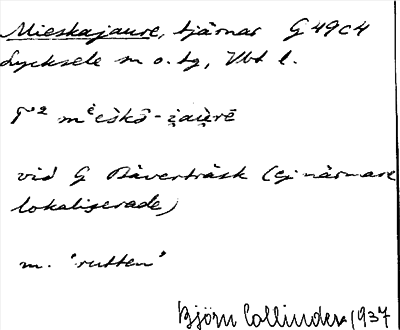 Mieskajaure, tjärnar G 49 C4
Lycksele sn o. tg, Vbt l.
mi̯èskō-jaùrē
vid G Bäverträsk (ej närmare
lokaliserade)
m. "rutten"
Björn Collinder 1937